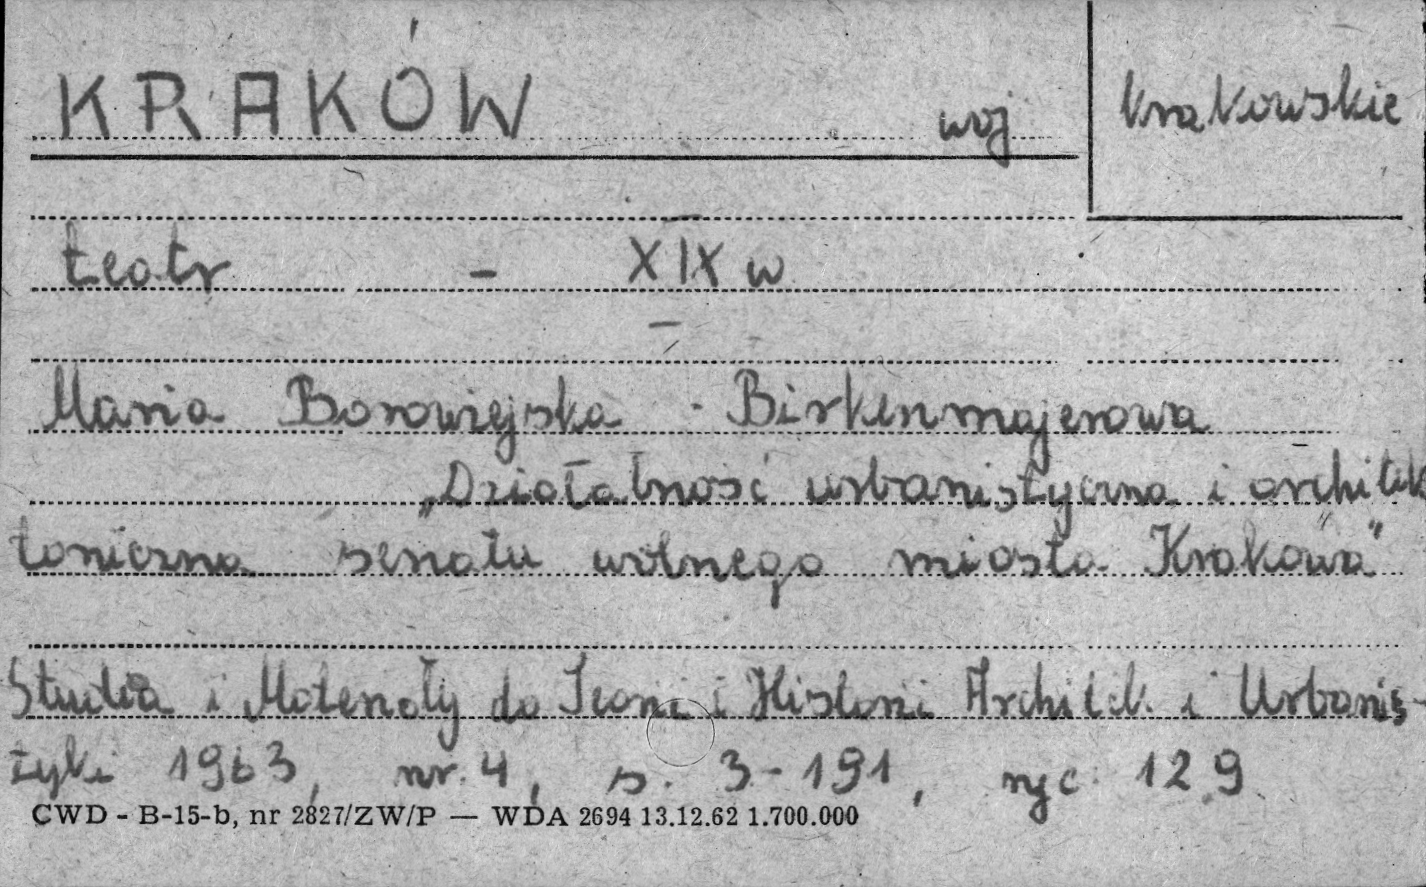 KRAKÓW woj krakowskie
teatr - XIX w
Maria Borowiejska - Birkenmajerowa
„Działalność urbanistyczna i architek
toniczna senatu wolnego miasta Krakowa"
Studia i Materiały do Teorii i Historii Architek. i Urbanis-
tyki 1963, nr. 4, s. 3-191, ryc 129
CWD - B-15-b, nr 2827/ZW/P — WDA 2694 13.12.62 1.700.000